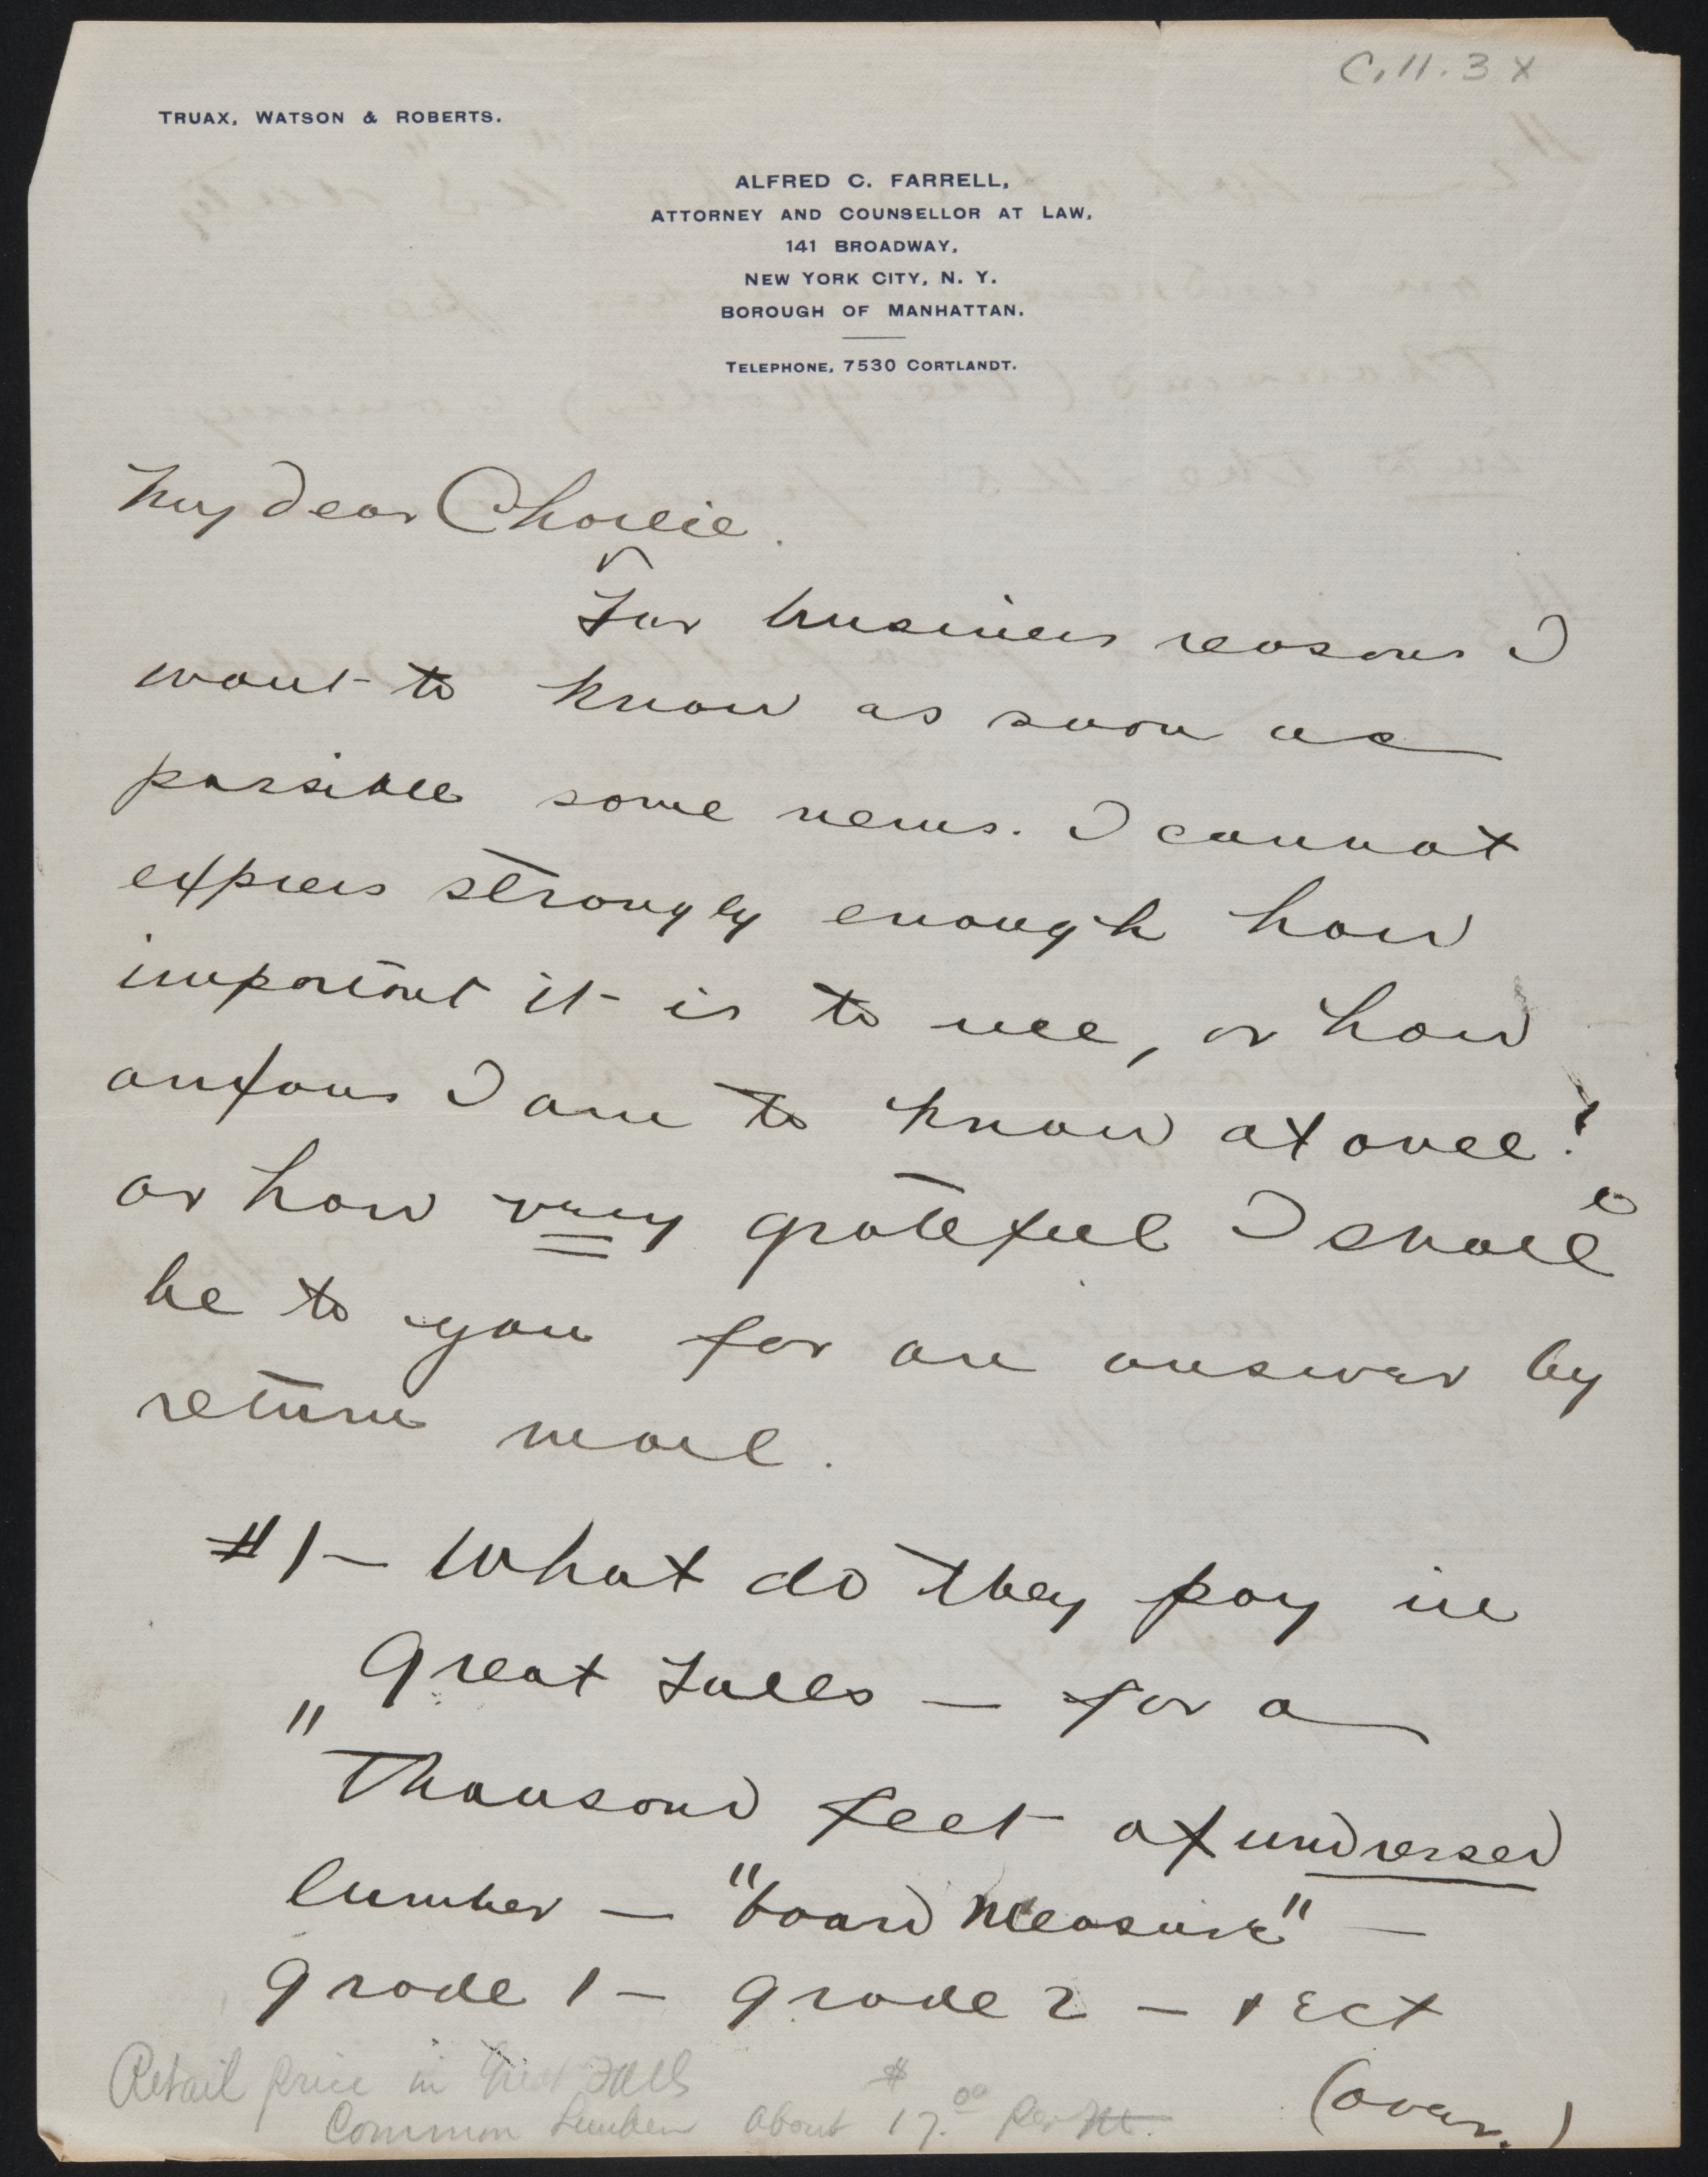 C. 11. 3 x
TRUAX, WATSON & ROBERTS.
ALFRED C. FARRELL,
ATTORNEY AND COUNSELLOR AT LAW,
141 BROADWAY,
NEW YORK CITY, N. Y.
BOROUGH OF MANHATTAN.
TELEPHONE, 7530 CORTLANDT.
My dear Charlie.
For business reasons I
want to know as soon as
possible some news. I cannot
express strongly enough how
important it is to me, or how
anxious I am to know at once!
or how very grateful I shall
be to you for an answer by
return mail.
#1 — What do they pay in
Great Falls — for a
" Thousand feet of undressed
lumber — "board measure" —
grade 1 — grade 2 — + ect
(over.)
Retail price in Great Falls
Common Lumber about $17.00 Per M.